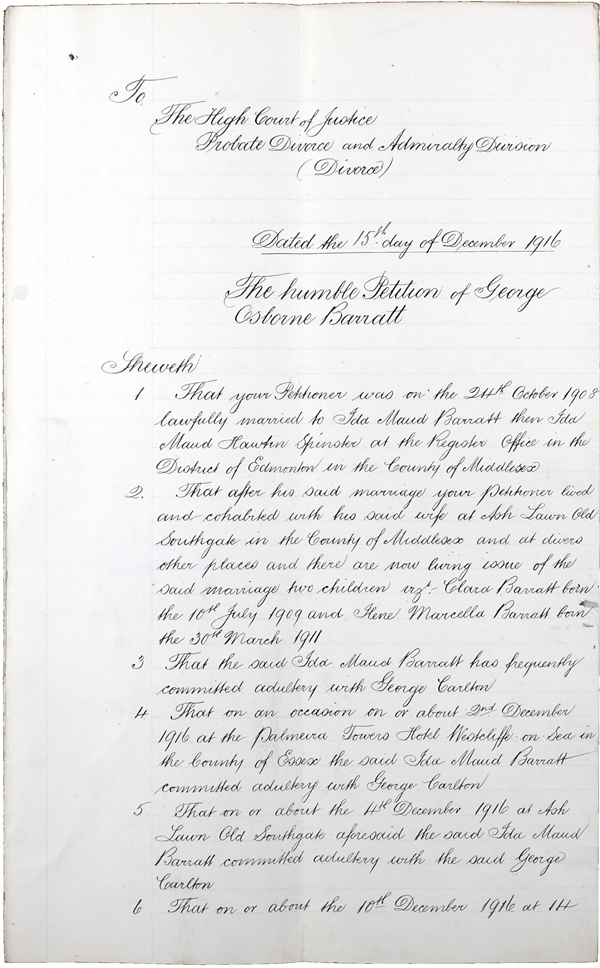 To
The High Court of Justice
Probate Divorce and Admiralty Division
(Divorce)
Dated the 15th day of December 1916
The humble Petition of George
Osborne Barratt
Sheweth
1 That your Petitioner was on the 24th October 1908
lawfully married to Ida Maud Barratt then Ida
Maud Hawtin Spinster at the Register Office in the
District of Edmonton in the County of Middlesex
2. That after his said marriage your Petitioner lived
and cohabited with his said wife at Ash Lawn Old
Southgate in the County of Middlesex and at divers
other places and there are now living issue of the
said marriage two children vizt. Clara Barratt born
the 10th July 1909 and Ilene Marcella Barratt born
the 30th March 1911
3 That the said Ida Maud Barratt has frequently
committed adultery with George Carlton
4 That on an occasion on or about 2nd December
1916 at the Palmeira Towers Hotel Westcliffe on Sea in
the County of Essex the said Ida Maud Barratt
committed adultery with George Carlton
5 That on or about the 4th December 1916 at Ash
Lawn Old Southgate aforesaid the said Ida Maud
Barratt committed adultery with the said George
Carlton
6 That on or about the 10th December 1916 at 14